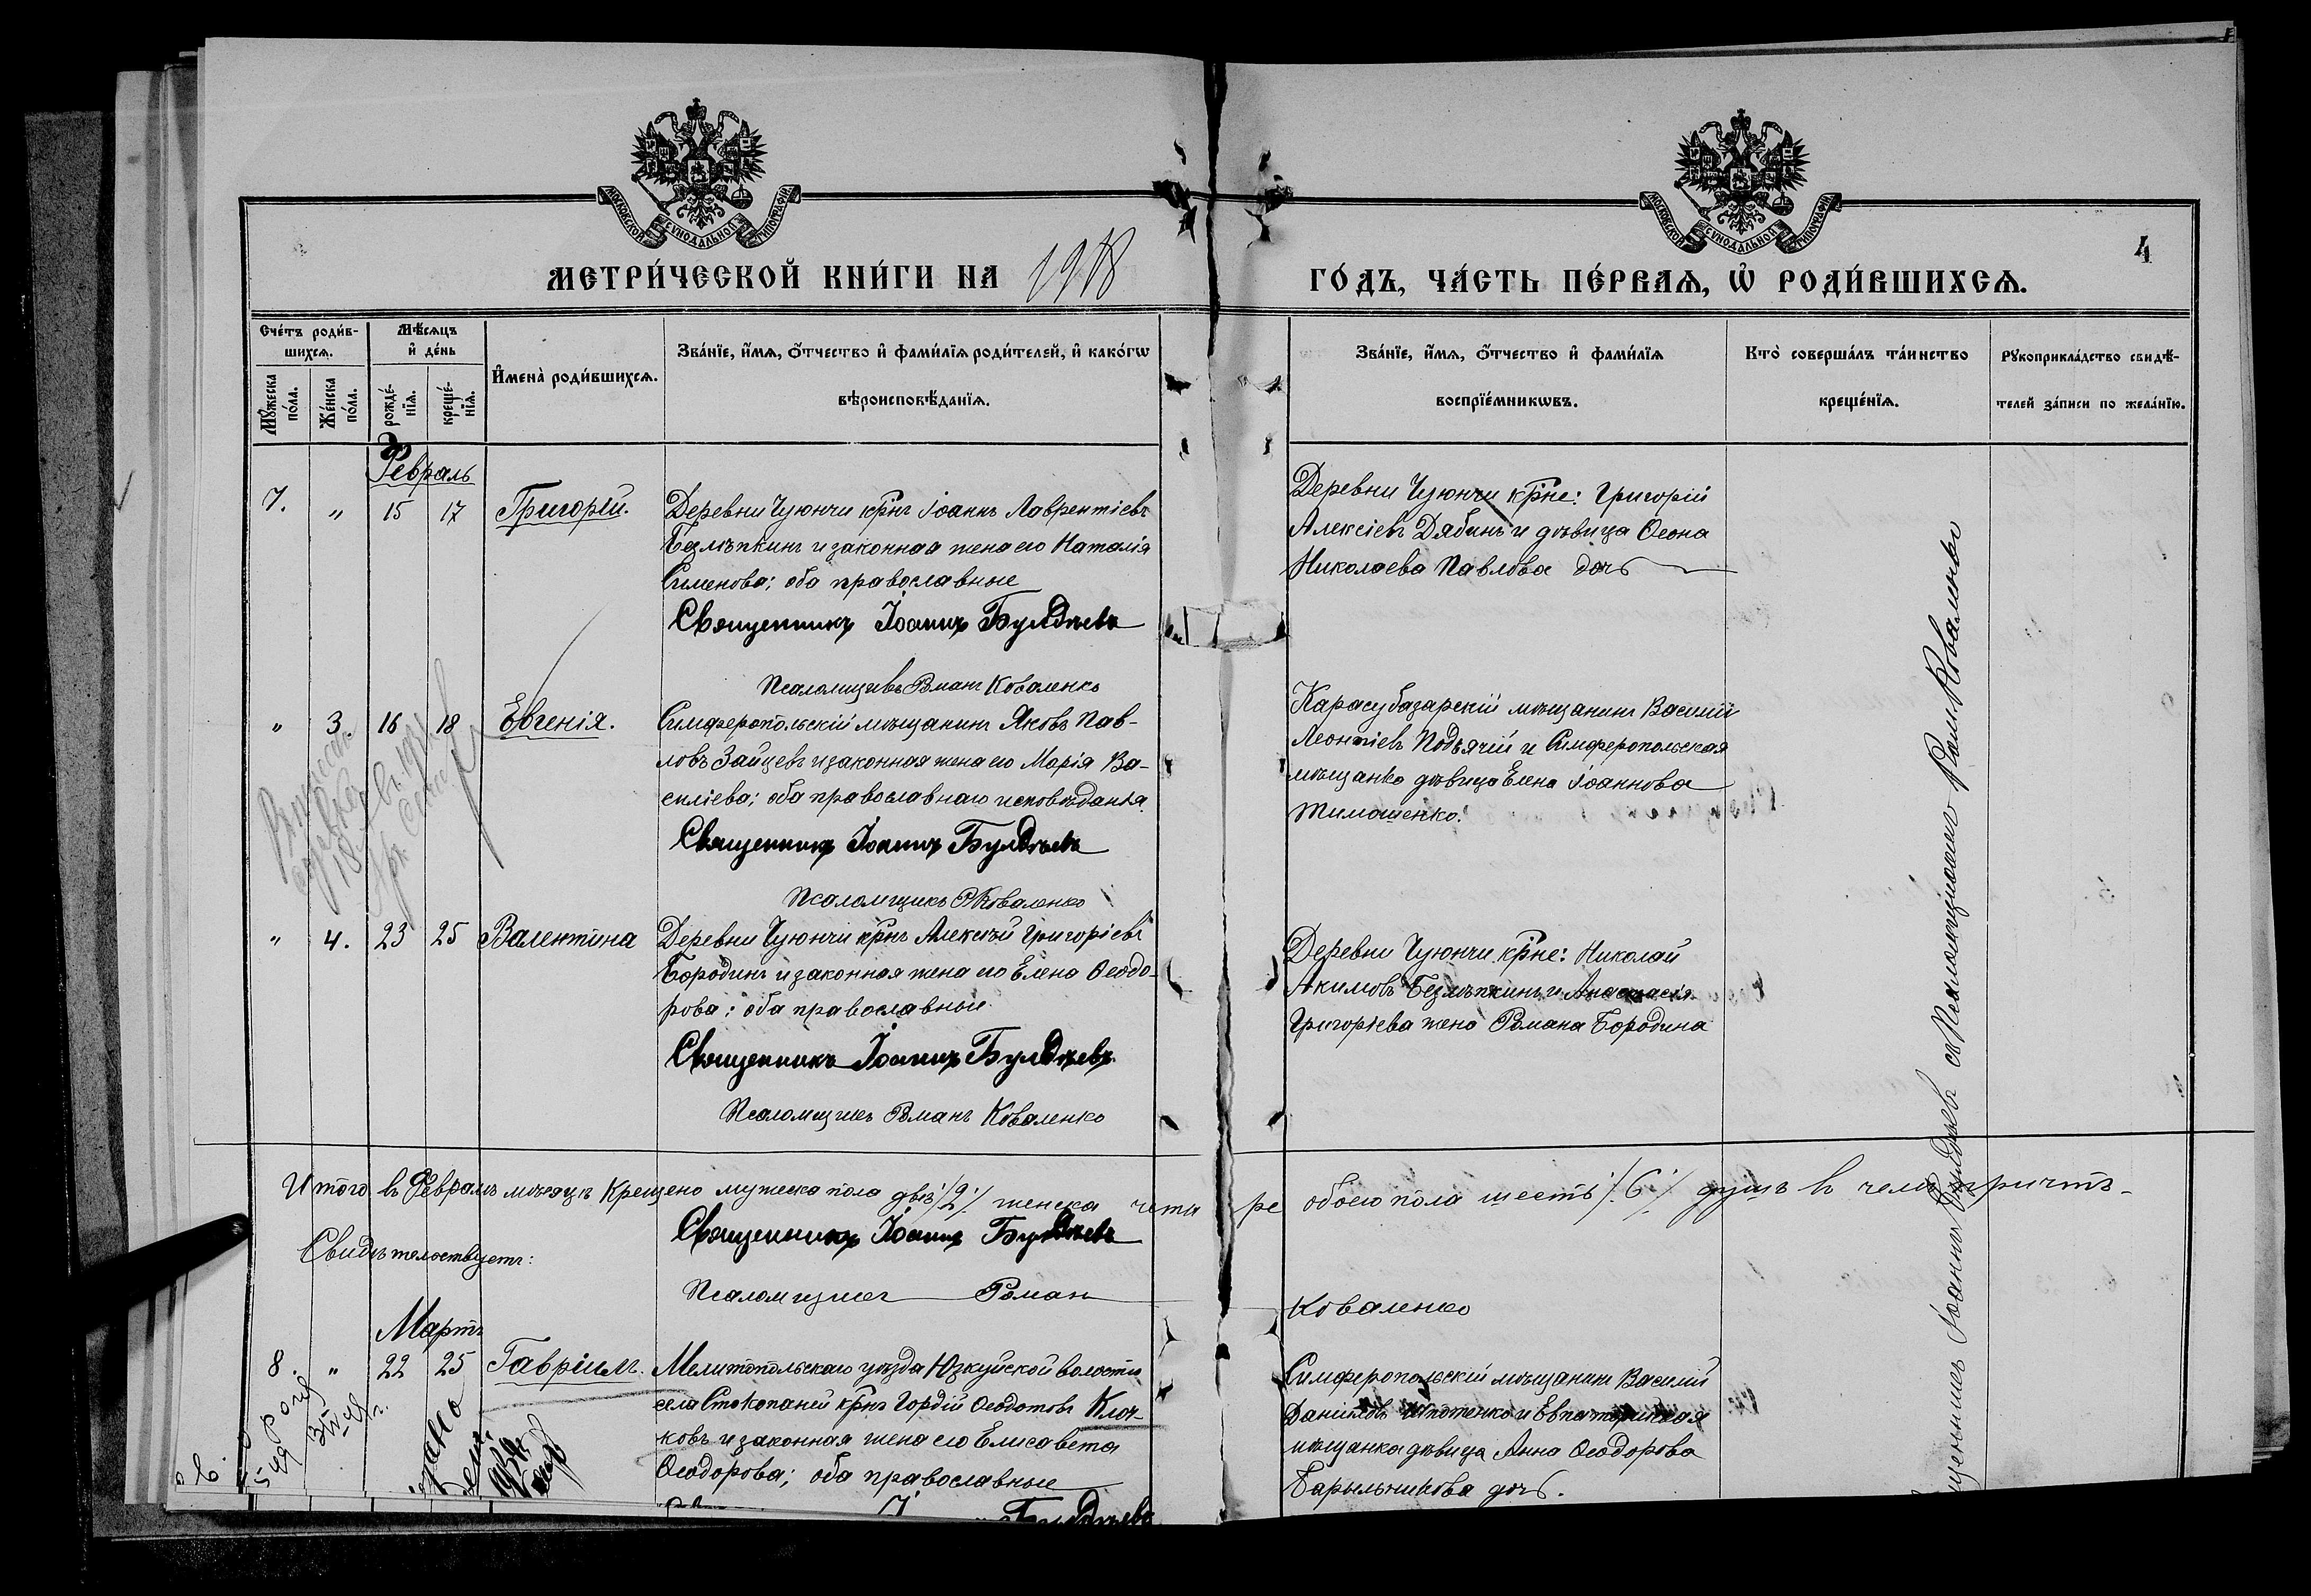 МОСКОВСКОЙ СѴНОДАЛЬНОЙ ТИПОГРАФІИ
МОСКОВСКОЙ СѴНОДАЛЬНОЙ ТИПОГРАФІИ
4
МЕТРИ́ЧЕСКОЙ КНИ́ГИ НА 1918 ГО́ДЪ, ЧА́СТЬ ПЕ́РВАѦ, Ѽ РОДИ́ВШИХСѦ.
Сче́тъ роди́в-
шихсѧ.
Мꙋ́жеска по́ла.
Же́нска по́ла.
Мѣ́сѧцъ
и҆ де́нь
рожде́-
нїѧ.
креще́-
нїѧ.
И҆мена̀ роди́вшихсѧ.
Зва́нїе, и҆́мѧ, ѻ҆́тчество и҆ фами́лїѧ роди́телей, и҆ како́гѡ
вѣроисповѣ́данїѧ.
Зва́нїе, и҆́мѧ, ѻ҆́тчество и҆ фами́лїѧ
воспрїе́мникѡвъ.
Кто̀ соверша́лъ та́инство
креще́нїѧ.
Рꙋкоприкла́дство свидѣ́-
телей за́писи по жела́нїю.
Февраль
7. " 15 17 Григорій.
Деревни Чуюнчи крнъ Іоаннъ Лаврентіевъ
Безлѣпкинъ и законная жена его Наталія
Сименова; оба православные
Священникъ Іоаннъ Булдѣевъ
Псаломщикъ Романъ Коваленко
Деревни Чуюнчи крне: Григорій
Алексіевъ Дябинъ и дѣвица Ѳеона
Николаева Павлова дочь
" 3. 16 18 Евгенія.
Симферопольскій мѣщанинъ Яковъ Пав-
ловъ Зайцевъ и законная жена его Марія Ва-
силіева; оба православнаго исповѣданія
Священникъ Іоаннъ Булдѣевъ
Псаломщикъ Р Коваленко
Карасубазарскій мѣщанинъ Василій
Леонтіевъ Подьячій и Симферопольская
мѣщанка дѣвица Елена Іоаннова
Тимошенко.
" 4. 23 25 Валентина
Деревни Чуюнчи крнъ Алексѣй Григоріевъ
Бородинъ и законная жена его Елена Ѳеодо-
рова; оба православные.
Священникъ Іоаннъ Булдѣевъ.
Псаломщикъ Романъ Коваленко
Деревни Чуюнчи крне: Николай
Акимовъ Безлѣпкинъ и Анастасія
Григоріева жена Романа Бородина
Итого въ Февралѣ мѣсяцѣ крещено мужеска пола два /2/ женска четыре обоего пола шесть /6/ душъ въ чемъ причтъ
Свидѣтельствуетъ:
Священникъ Іоаннъ Булдѣевъ
Псаломщикъ Романъ Коваленко
Мартъ
8. " 22 25 Гавріилъ.
Мелитопольскаго уѣзда Юзкуйской волости
села Стокопаней крнъ Гордій Ѳеодотовъ Клоч-
ковъ и законная жена его Елисавета
Ѳеодорова; оба православные
Булдѣевъ
Симферопольскій мѣщанинъ Василій
Даниловъ и Евпаторійская
мѣщанка дѣвица Анна Ѳеодорова
Барыльникова дочь.
Іоаннъ Булдѣевъ съ Псаломщикомъ Ром. Коваленко